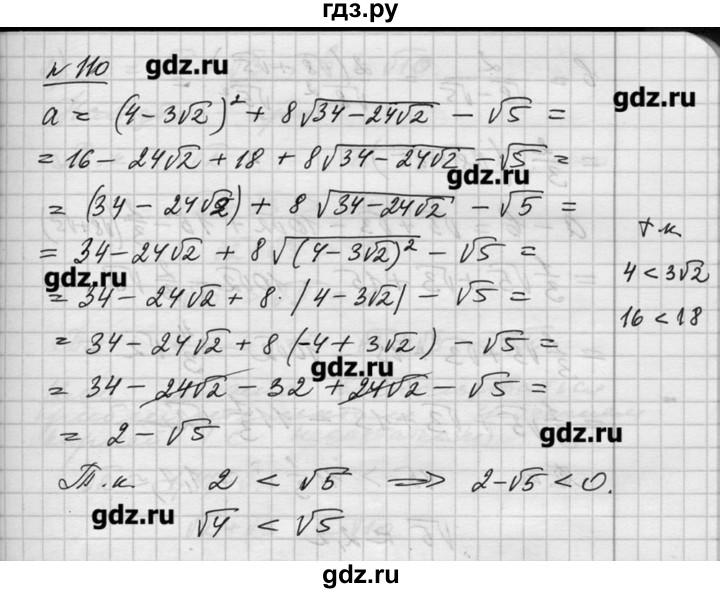 гдз.ру
№ 110
gdz.ru
a = (4 − 3√2)² + 8√(34 − 24√2) − √5 =
gdz.ru
= 16 − 24√2 + 18 + 8√(34 − 24√2) − √5 =
gdz.ru
= (34 − 24√2) + 8√(34 − 24√2) − √5 =
т.к
= 34 − 24√2 + 8√((4 − 3√2)²) − √5 =
4 < 3√2
gdz.ru
= 34 − 24√2 + 8 · |4 − 3√2| − √5 =
16 < 18
= 34 − 24√2 + 8(−4 + 3√2) − √5 =
gdz.ru
= 34 − 24√2 − 32 + 24√2 − √5 =
= 2 − √5
gdz.ru
Т.к. 2 < √5 ⟹ 2 − √5 < 0.
gdz.ru
√4 < √5
gdz.ru